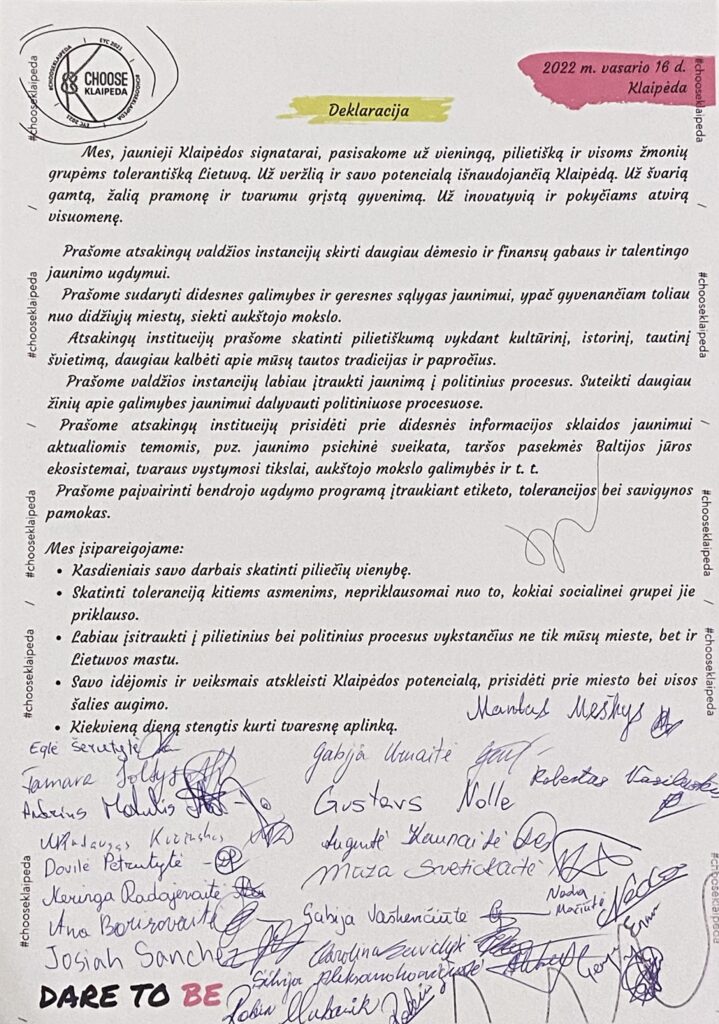 CHOOSE
KLAIPĖDA
#CHOOSEKLAIPEDA
EYC 2021
#CHOOSEKLAIPEDA
EYC 2021
#chooseklaipeda
#chooseklaipeda
#chooseklaipeda
#chooseklaipeda
#chooseklaipeda
2022 m. vasario 16 d.
Klaipėda
Deklaracija
Mes, jaunieji Klaipėdos signatarai, pasisakome už vieningą, pilietišką ir visoms žmonių
grupėms tolerantišką Lietuvą. Už veržlią ir savo potencialą išnaudojančią Klaipėdą. Už švarią
gamtą, žalią pramonę ir tvarumu grįstą gyvenimą. Už inovatyvią ir pokyčiams atvirą
visuomenę.
Prašome atsakingų valdžios instancijų skirti daugiau dėmesio ir finansų gabaus ir talentingo
jaunimo ugdymui.
Prašome sudaryti didesnes galimybes ir geresnes sąlygas jaunimui, ypač gyvenančiam toliau
nuo didžiųjų miestų, siekti aukštojo mokslo.
Atsakingų institucijų prašome skatinti pilietiškumą vykdant kultūrinį, istorinį, tautinį
švietimą, daugiau kalbėti apie mūsų tautos tradicijas ir papročius.
Prašome valdžios instancijų labiau įtraukti jaunimą į politinius procesus. Suteikti daugiau
žinių apie galimybes jaunimui dalyvauti politiniuose procesuose.
Prašome atsakingų institucijų prisidėti prie didesnės informacijos sklaidos jaunimui
aktualiomis temomis, pvz. jaunimo psichinė sveikata, taršos pasekmės Baltijos jūros
ekosistemai, tvaraus vystymosi tikslai, aukštojo mokslo galimybės ir t. t.
Prašome paįvairinti bendrojo ugdymo programą įtraukiant etiketo, tolerancijos bei savigynos
pamokas.
Mes įsipareigojame:
• Kasdieniais savo darbais skatinti piliečių vienybę.
• Skatinti toleranciją kitiems asmenims, nepriklausomai nuo to, kokiai socialinei grupei jie
priklauso.
• Labiau įsitraukti į pilietinius bei politinius procesus vykstančius ne tik mūsų mieste, bet ir
Lietuvos mastu.
• Savo idėjomis ir veiksmais atskleisti Klaipėdos potencialą, prisidėti prie miesto bei visos
šalies augimo.
• Kiekvieną dieną stengtis kurti tvaresnę aplinką.
Mantas Meškys
Eglė Šerutytė
Gabija Urnaitė
Tamara Soldys
Robertas
Andrius
Gustavs Nolle
Augutė Kaunaitė
Dovilė Petrutytė
Muza Svetickaitė
Neringa Radajevaitė
Nada
Mačiutė
Ana
Gabija
Josiah Sanchez
Karolina
Silvija
Robin Mubarik
DARE TO BE
#chooseklaipeda
#chooseklaipeda
#chooseklaipeda
#chooseklaipeda
#chooseklaipeda